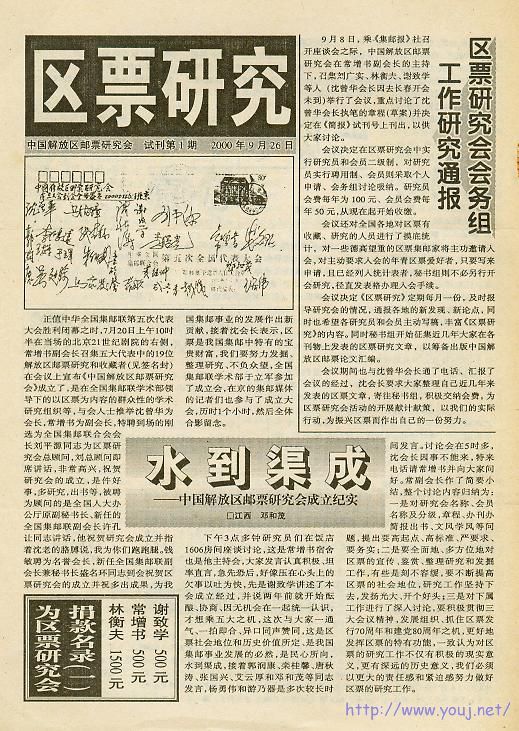 区票研究
中国解放区邮票研究会 试刊第1期 2000年9月26日
中国解放区邮票研究会
第五次全国代表大会
区票研究会会务组
工作研究通报
9月8日，乘《集邮报》社召
开座谈会之际，中国解放区邮票
研究会在常增书副会长的主持
下，召集刘广实、林衡夫、谢致学
等人（沈曾华会长因去长春开会
未到）举行了会议，重点讨论了沈
曾华会长执笔的章程（草案）并决
定在《简报》试刊号上刊出，以供
大家讨论。
会议决定在区票研究会中实
行研究员和会员二级制，对研究
员实行聘用制、会员则采取个人
申请、会务组讨论吸纳。研究员
会费每年为100元、会员会费每
年50元，从现在起开始收缴。
会议还对全国各地对区票有
收藏、研究的人员进行了摸底统
计，对一些德高望重的区票集邮家将主动邀请入
会，对主动要求入会的年青区票爱好者，只要写来
申请，且已经列人统计表者，秘书组则不必另行开
会研究，径直发表格办理入会手续。
会议决定《区票研究》定期每月一份，及时报
导研究会的情况，通报各地的新发现、新论点，同
时也希望各研究员和会员主动写稿，丰富《区票研
究》的内容。同时秘书组开始征集近几年大家在各
刊物上发表的区票研究文章，以筹备出版中国解放
区邮票论文汇编。
会议期间也与沈曾华会长通了电话、汇报了
会议的经过，沈会长要求大家整理自己近几年来
发表的区票文章，寄往秘书组，积极交纳会费，为
区票研究会活动的开展献计献策，以我们的实际
行动，为振兴区票而作出自己的一份努力。
正值中华全国集邮联第五次代表
大会胜利闭幕之时，7月20日上午10时
半在当场的北京21世纪剧院的右侧，
常增书副会长召集五大代表中的19位
解放区邮票研究和收藏者（见签名封）
在会议上宣布《中国解放区邮票研究
会》成立了，是在全国集邮联学术部领
导下的以区票为内容的群众性的学术
研究组织等，与会人士推举沈曾华为会
长，常增书为副会长，特聘到场的刚
选为全国集邮联合会会
长刘平源同志为区票研
究会总顾问，刘总顾问即
席讲话，非常高兴，祝贺
研究会的成立，是件好
事，多研究，出书等，被聘
为顾问的是全国人大办
公厅原副秘书长、新任的
全国集邮联副会长许孔
让同志讲话，他祝贺研究会成立并指
着沈老的胳膊说，我为你们跑跑腿，钱
敏聘为名誉会长，新任全国集邮联副
会长兼秘书长盛名环同志到会祝贺区
票研究会的成立并祝多出成果，为我
国集邮事业的发展作出新
贡献，接着沈会长表示，区
票是我国集邮中特有的宝
贵财富，我们要努力发掘，
整理研究，不负众望，全国
集邮联学术部于立军参加
了成立会，在京的集邮媒体
的记者们也参与了成立大
会，历时1个小时，然后全体
合影留念。
水到渠成
——中国解放区邮票研究会成立纪实
□江西 邓和茂
下午3点多钟研究员们在饭店
1606房间座谈讨论，这是常增书宿舍
也是他主持会，大家发言认真积极，坦
率直言，急先恐后，好像压在心头上的
欠事以吐为快，先是谢致学讲述了本
会成立经过，并说两年前就开始酝
酿、协商、因无机会在一起统一认识，
才想乘五大之机，这次与大家一通
气、一拍即合、异口同声赞同，这是区
票社会地位和历史价值所定、是我国
集邮事业发展的必然，是民心所向，
水到渠成，接着郭润康、栾桂馨、唐秋
涛、张国兴、支云厚和邓和茂等同志
发言，杨勇伟和游乃器是多次较长时
间发言。讨论会在5时多，
沈会长因事不能来，特来
电话请常增书并向大家问
好。常副会长作了简要小
结，整个讨论内容归纳为：
一是对研究会名称、会员
名称及分级，章程、办刊办
简报出书、文风学风等问
题，提出要高起点、高标准、严要求、
要务实；二是要全面地、多方位地对
区票的宣传、鉴赏、整理研究和发掘
工作，有些是刻不容缓，要不断提高
区票的社会地位，研究工作坚持下
去，发扬光大、开个好头；三是对下属
工作进行了深人讨论，要积极贯彻三
大会议精神，发展组织、抓住区票发
行70周年和建党80周年之机，更好地
发挥区票的特有功能，一致认为对区
票的研究工作不仅有积极的现实意
义，更有深远的历史意义，我们必须
以更大的责任感和紧迫感努力做好
区票的研究工作。
为区票研究会
捐款名录（一）
谢致学 500元
常增书 500元
林衡夫 1500元
http://www.youj.net/